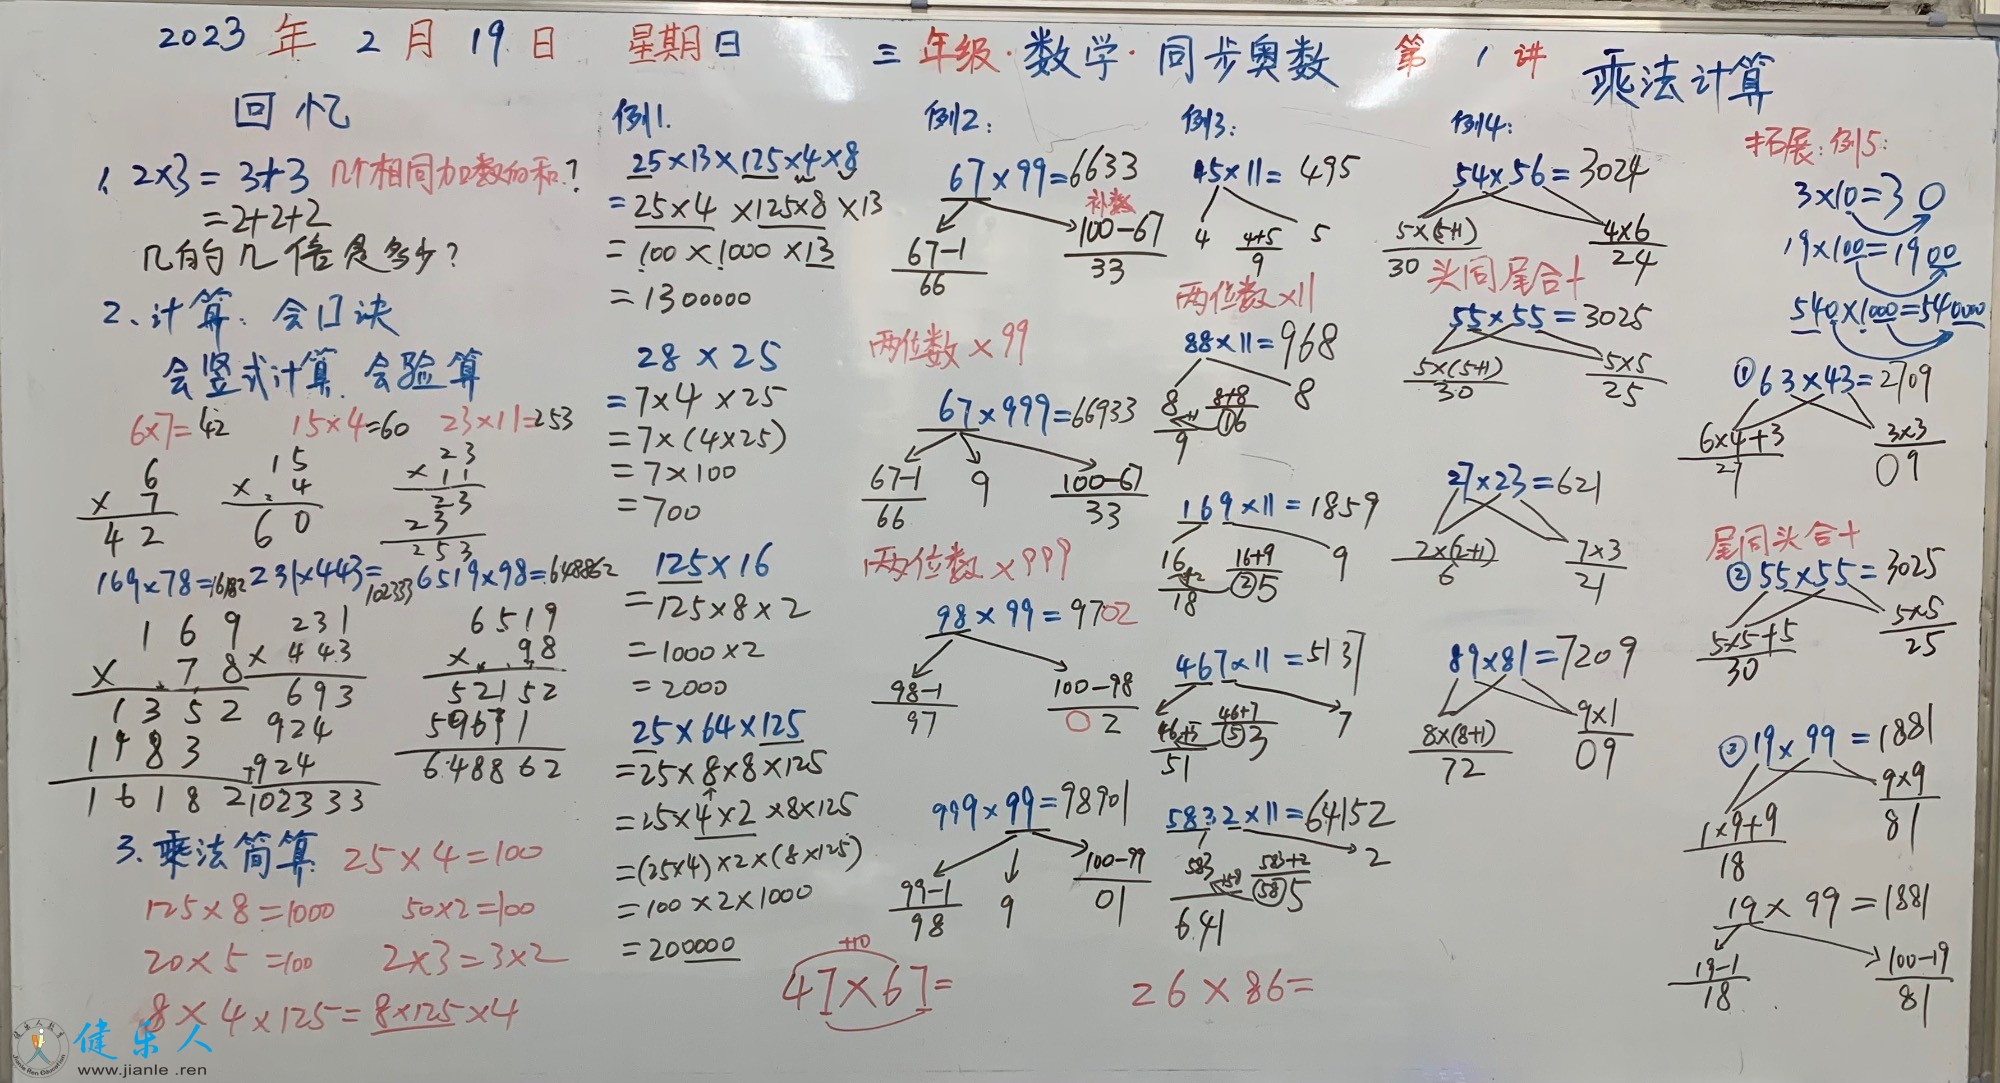 2023年2月19日 星期日 三年级·数学·同步奥数 第1讲 乘法计算
回忆
1、2×3=3+3 几个相同加数的和?
=2+2+2
几的几倍是多少?
2、计算:会口诀
会竖式计算.会验算
6×7=42 15×4=60 23×11=253
6
× 7
42
15
× 4
60
23
× 11
23
23
253
169×78=16182 231×443=102333 6519×98=648862
169
× 78
1352
1183
16182
231
× 443
693
924
+924
102333
6519
× 98
52152
59671
648862
3.乘法简算 25×4=100
125×8=1000 50×2=100
20×5=100 2×3=3×2
8×4×125=8×125×4
例1.
25×13×125×4×8
=25×4×125×8×13
=100×1000×13
=1300000
28×25
=7×4×25
=7×(4×25)
=7×100
=700
125×16
=125×8×2
=1000×2
=2000
25×64×125
=25×8×8×125
=25×4×2×8×125
=(25×4)×2×(8×125)
=100×2×1000
=200000
例2:
67×99=6633
补数
67-1 100-67
66 33
两位数×99
67×999=66933
67-1 9 100-67
66 33
两位数×999
98×99=9702
98-1 100-98
97 02
999×99=98901
99-1 9 100-99
98 01
+10
47×67=
例3:
45×11=495
4 4+5 5
9
两位数×11
88×11=968
8 +1 8+8 8
9 ①6
169×11=1859
16 +2 16+9 9
18 ②5
467×11=5137
46+5 46+7 7
51 ⑤3
5832×11=64152
583 +58 583+2 2
641 (58)5
26×86=
例4:
54×56=3024
5×(5+1) 4×6
30 24
头同尾合十
55×55=3025
5×(5+1) 5×5
30 25
27×23=621
2×(2+1) 7×3
6 21
89×81=7209
8×(8+1) 9×1
72 09
拓展:例5:
3×10=30
19×100=1900
540×1000=540000
①63×43=2709
6×4+3 3×3
27 09
尾同头合十
②55×55=3025
5×5+5 5×5
30 25
③19×99=1881
1×9+9 9×9
18 81
19×99=1881
19-1 100-19
18 81
健乐人
www.jianle.ren